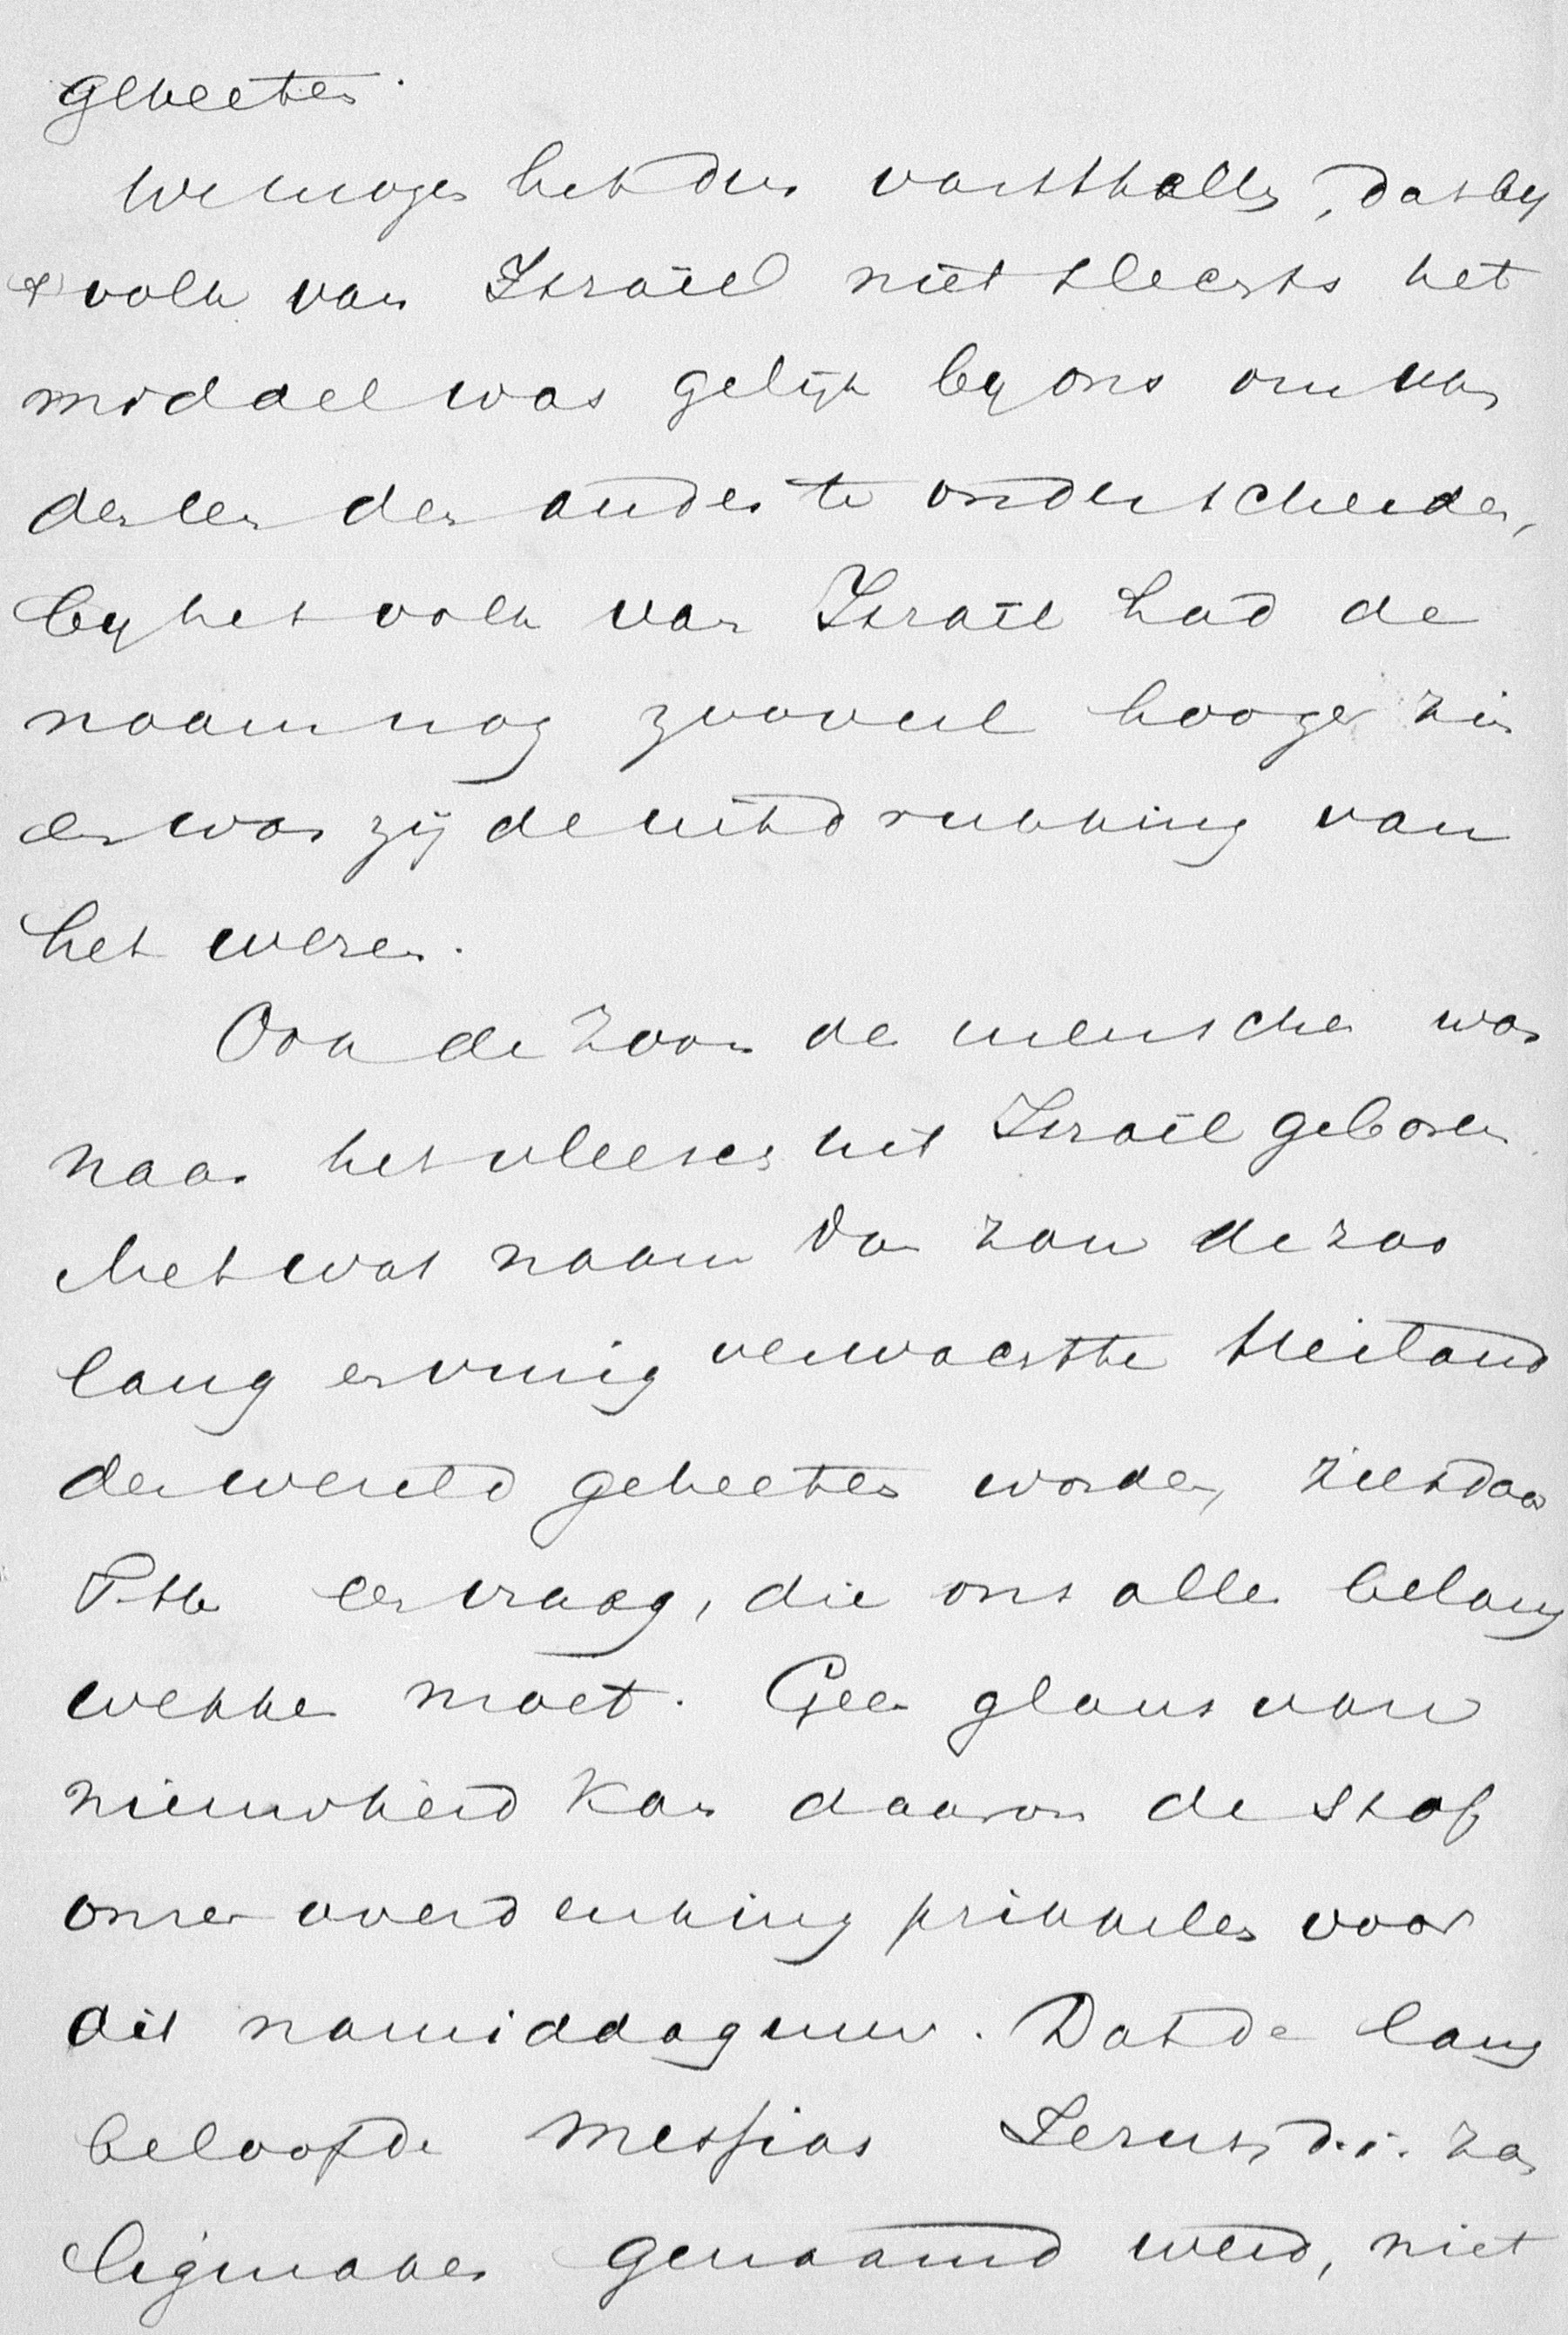 geheeten.
We mogen het dus vaststellen, dat by
't volk van Israël niet slechts het
middel was gelijk by ons om van
den een den ander te onderscheiden,
by het volk van Israël had de
naam nog zooveel hooger zin
en was zij de uitdrukking van
het wezen.
Ook de Zoon des menschen was
naar het vleesch uit Israël geboren
Met wat naam dan zou de zoo
lang en vurig verwachtte Heiland
der wereld geheeten worden, ziet daar
een vraag, die ons allen belang
wekken moet. Geen glans van
nieuwheid kan daarom de stof
onzer overdenking prikkelen voor
dit namiddaguur. Dat de lang
beloofde Messias Jezus, d.i. Za
ligmaker genaamd werd, niet